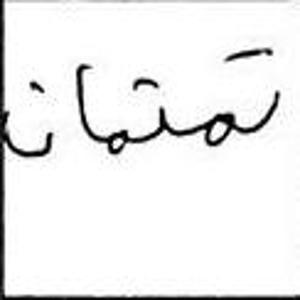 تمتمان